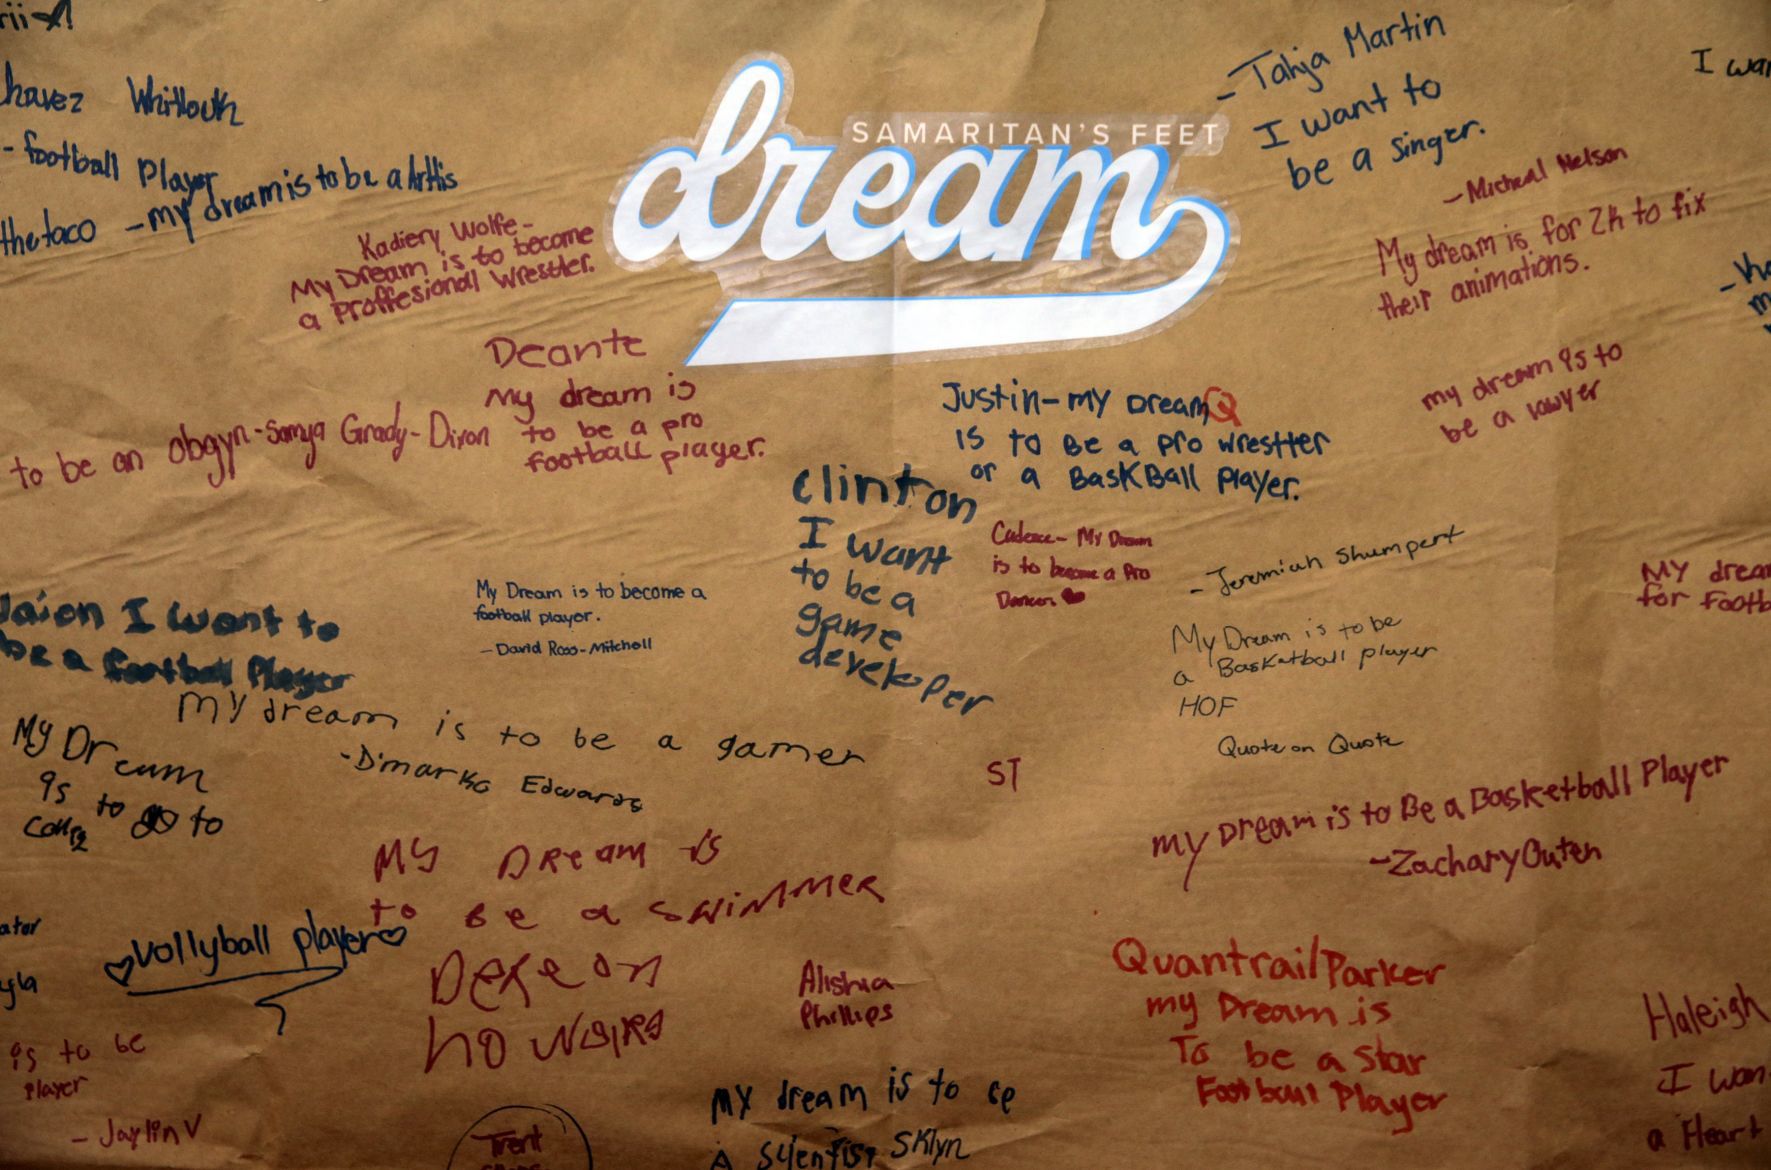 SAMARITAN'S FEET
dream
- Tahja Martin
I want to
be a singer.
- Micheal Nelson
My dream is for 2K to fix
their animations.
my dream is to
be a lawyer
- football Player
the taco - my dream is to be a
Kadiery Wolfe -
My Dream is to become
a Proffesional Wrestler.
Deante
My dream is
to be a pro
football player.
to be an obgyn - Samya Grady - Dixon
Justin - my Dream
is to Be a pro wrestler
or a BaskBall player.
clinton
I want
to be a
game
developer
Cadence - My Dream
is to become a Pro
Dancer
- Jeremiah Shumpert
My Dream is to be
a Basketball player
HOF
Quote on Quote
My Dream is to become a
football player.
- David Ross-Mitchell
I want to
be a football Player
my dream is to be a gamer
- D'marko Edwards
My Dream
is to go to
ST
my Dream is to Be a Basketball Player
- Zachary Outen
My Dream is
to Be a swimmer
vollyball player
Alishia
Phillips
Quantrail Parker
my Dream is
To be a star
Football Player
is to be
player
- Jaylin V
Trent
My dream is to
A Sklyn
Haleigh
I
a Heart
My
for
I